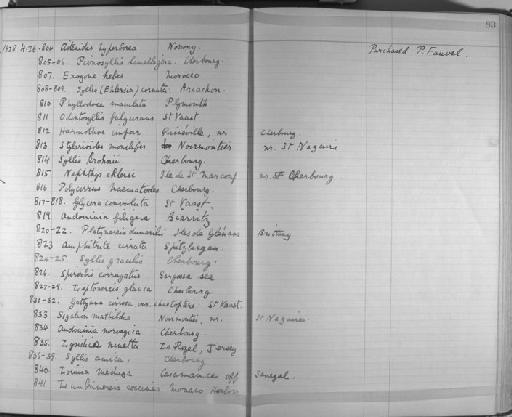 93
1928.4.26.804 Asteritas hyperborea Norway. Purchased P. Fauvel.
805-06. Pionosyllis lamelligera. Cherbourg.
807. Exogone hebes Morocco
808-809. Syllis (Ehlersia) cornuta. Arcachon.
810 Phyllodoce maculata Plymouth
811 Odontosyllis fulgurans St Vaast
812 Harmothoe impar Quinéville, nr Cherbourg.
813 Sthenelais Noirmoutier nr. St Nazaire
814 Syllis Krohnii Cherbourg.
815 Nephthys Iles de St Marcouf nr. St Cherbourg
816 Polycirrus Cherbourg.
817-818. Glycera convoluta St Vaast.
819. Audouinia filigera Biarritz
820-22. Platynereis dumerilii Iles de Glénans Brittany
823 Amphitrite cirrata Spitzbergen.
824-25. Syllis gracilis Cherbourg.
826. Spirorbis corrugatus Sargossa sea
827-29. Cherbourg
830-32. Gattyana cirrosa var. St Vaast.
833 Sigalion mathildae Noirmoutier, nr. St Nazaire.
834 Audouinia Cherbourg
835. Lysidice ninetta Le Rozel, Jersey
836-39. Syllis amica. Cherbourg
840. Casamance off Senegal.
841 Monaco Harbour